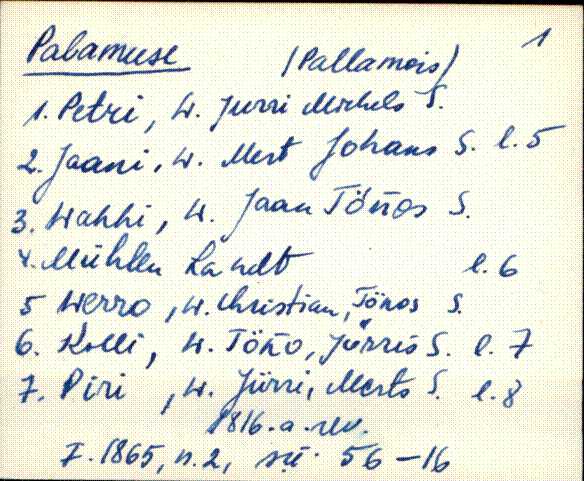 Palamuse (Pallamois) 1
1. Petri, W. Jurri Michels S.
2. Jaani, W. Mert Johans S. l. 5
3. Wahhi, W. Jaan Tönos S.
4. Mühlen Landt l. 6
5 Werro, W. Christian, Tönos S.
6. Kolli, W. Töno, Jürris S. l. 7
7. Piri, W. Jürri, Merts S. l. 8
1816. a. rev.
F. 1865, n. 2, sü. 56-16